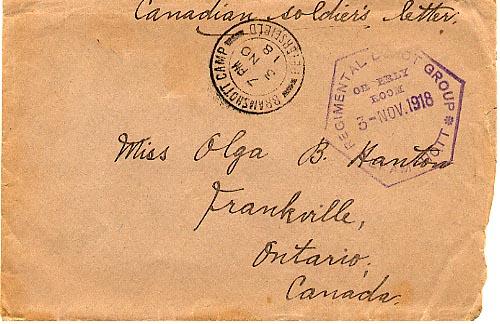 Canadian soldier's letter.
BRAMSHOTT CAMP
7 PM
NO
18
REGIMENTAL DEPOT GROUP
ORDERLY
ROOM
3-NOV.1918
Miss Olga B. Hanton
Frankville,
Ontario,
Canada.